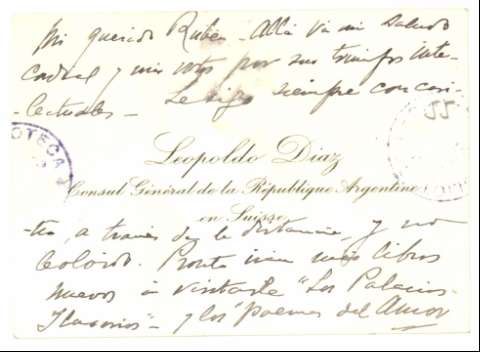 Mi querido Rubén - Allá va mi saludo
cordial y mis votos por sus triunfos inte-
-lectuales - Le sigo siempre con cari-
Leopoldo Diaz
Consul Général de la République Argentine
en Suisse
a través de la distancia, y no
le olvido. Pronto irán mis libros
nuevos á visitarle "Los Palacios
Ilusorios" - y los "poemas del Amor
OTECA